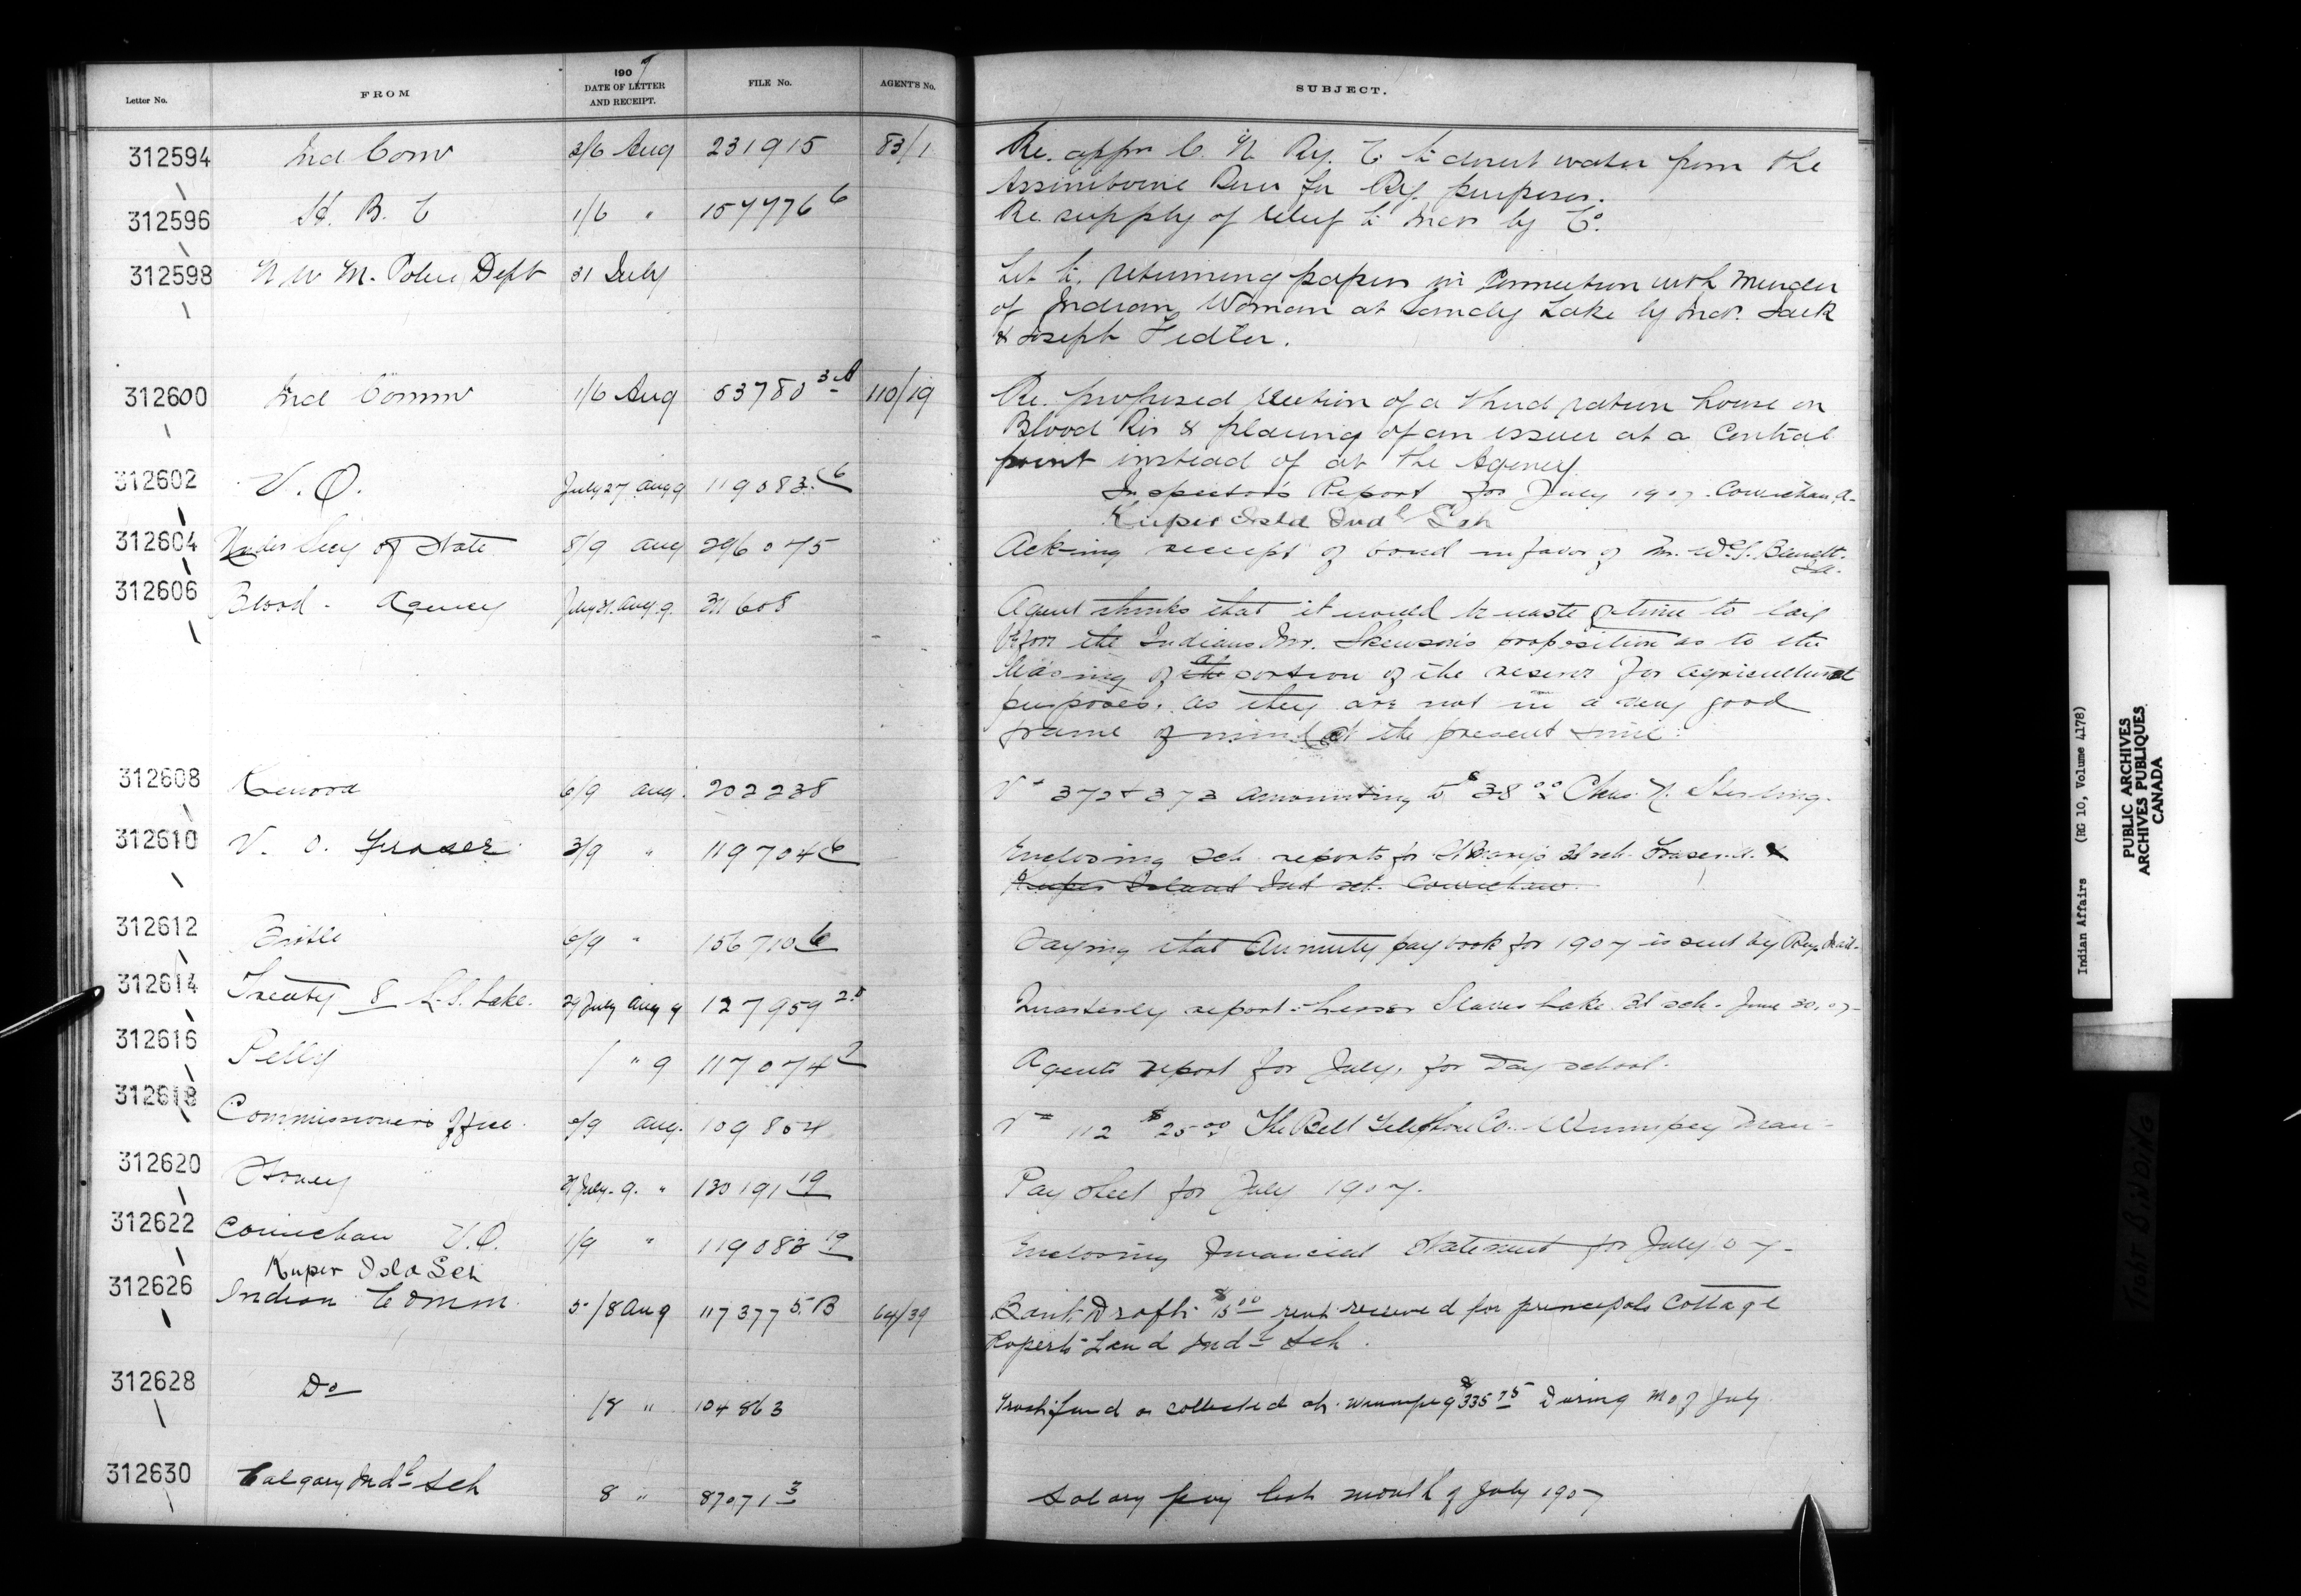 Letter No. FROM 1907 DATE OF LETTER AND RECEIPT. FILE No. AGENT'S No. SUBJECT.
312594 Ind Comr 3/6 Aug 231915 83/1 Re. appn C. N. Ry. Co to divert water from the
Assiniboine River for Ry. purposes.
312596 H. B. C 1/6 " 157776 6 Re supply of relief to Inds by Co.
312598 N W M. Police Dept 31 July Let to, returning papers in Connection with Murder
of Indian Woman at Sandy Lake by Inds. Jack
& Joseph Fidler.
312600 Ind Commr 1/6 Aug 53780 3-A 110/19 Re. proposed erection of a third ration house on
Blood Res & placing of an issuer at a Central
point instead of at the Agency
312602 V.O. July 27 Aug 9 119083 C6 Inspector's Report for July 1907. Cowichan, A-
Kuper Isld Indl Sch
312604 Under Secy of State 8/9 aug 296075 Ack-ing receipt of bond in favor of Mr. W. S.
312606 Blood - Agency July 31. Aug. 9 311608 Agent thinks that it would be waste of time to lay
before the Indians Mr. proposition as to the
leasing of the a portion of the reserve for agricultural
purposes. as they are not in a very good
frame of mind at the present time.
312608 Kenora 6/9 aug. 202238 V= 372 & 373 amounting to $38 00 Chas. N. Sterling.
312610 V. O. Fraser 3/9 " 119704 6 Enclosing sch. reports for St Mary's Bd sch. Fraser A. &
Kuper Island Ind sch. Cowichan.
312612 Birtle 6/9 " 156710 6 Saying that Annuity paybook for 1907 is sent by Reg. Mail-
312614 Treaty 8 L. S. Lake. 29 July Aug 9 127959 2.5 Quarterly report - Lesser Slave Lake. Bd sch. June 30, 07-
312616 Pelly / " 9 117074 2 Agents report for July, for Day school.
312618 Commissioner's Office. 6/9 aug. 109854 V= 112 $25 00 The Bell Telephone Co. Winnipeg Man-
312620 Stoney 31 July. 9. " 130191 19 Pay sheet for July 1907.
312622 Cowichan V.O. 1/9 " 119083 19 Enclosing Financial Statement for July 07-
Kuper Isld Sch
312626 Indian Comm. 5/8 Aug 117377 5.B 64/39 Bank Draft $15 00 rent received for principals Cottage
Ruperts Land Indl Sch.
312628 Do /8 " 104863 Trust fund a collected at Winnipeg $335 75 During M of July
312630 Calgary Indl Sch 8 " 87071 3 Salary pay list month of July 1907
Indian Affairs (RG 10, Volume 4178)
PUBLIC ARCHIVES
ARCHIVES PUBLIQUES
CANADA
TIGHT BINDING